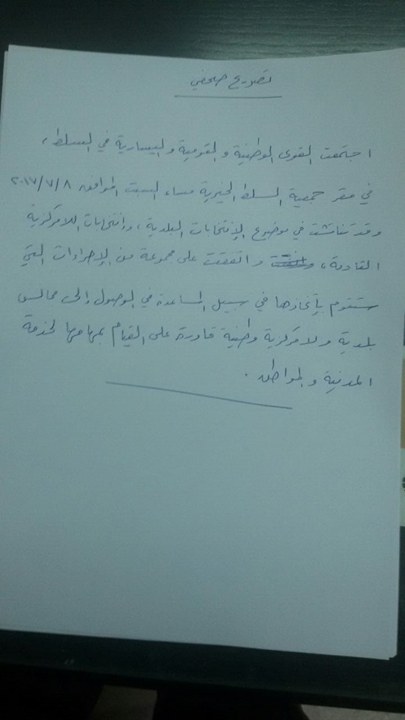 تصريح صحفي
اجتمعت القوى الوطنية والقومية واليسارية في السلط ،
في مقر جمعية السلط الخيرية مساء السبت الموافق ٢٠١٧/٧/٨
وقد تناقشت في موضوع الإنتخابات البلدية ، وإنتخابات اللامركزية
القادمة ، واتفقت على مجموعة من الإجراءات التي
ستقوم بإتخاذها في سبيل المساعدة في الوصول إلى مجالس
بلدية ولامركزية وطنية قادرة على القيام بمهامها لخدمة
المدينة والمواطن .